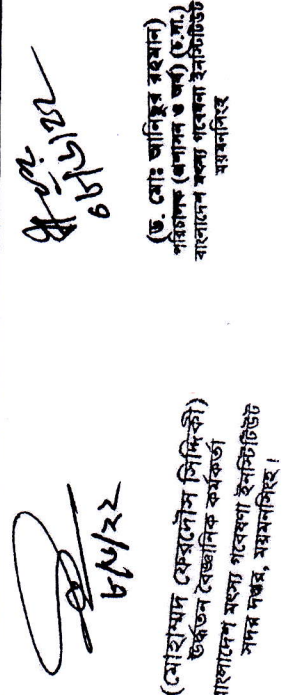 ৮/৮/২২
(মোহাম্মদ ফেরদৌস সিদ্দিকী)
উর্দ্ধতন বৈজ্ঞানিক কর্মকর্তা
বাংলাদেশ মৎস্য গবেষণা ইনস্টিটিউট
সদর দপ্তর, ময়মনসিংহ।
(ড. মোঃ আনিছুর রহমান)
পরিচালক (প্রশাসন ও অর্থ) (চ.দা.)
বাংলাদেশ মৎস্য গবেষণা ইনস্টিটিউট
ময়মনসিংহ